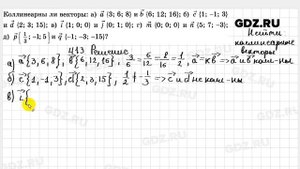 Коллинеарны ли векторы: а) a⃗ {3; 6; 8} и b⃗ {6; 12; 16}; б) c⃗ {1; −1; 3}
и d⃗ {2; 3; 15}; в) i⃗ {1; 0; 0} и j⃗ {0; 1; 0}; г) m⃗ {0; 0; 0} и n⃗ {5; 7; −3};
д) p⃗ {1/3; −1; 5} и q⃗ {−1; −3; −15}?
GDZ.RU
Найти
коллинеарные
векторы
413 Решение
а) a⃗{3, 6, 8}, b⃗{6, 12, 16}, 3/6 = 6/12 = 8/16 = 1/2, a⃗ = k b⃗ ⇒ a⃗ и b⃗ кол-ны
б) c⃗{1, -1, 3}, d⃗{2, 3, 15}, 1/2 ≠ -1/3 ⇒ c⃗ и d⃗ не кол-ны
в) i⃗{
GDZ.RU